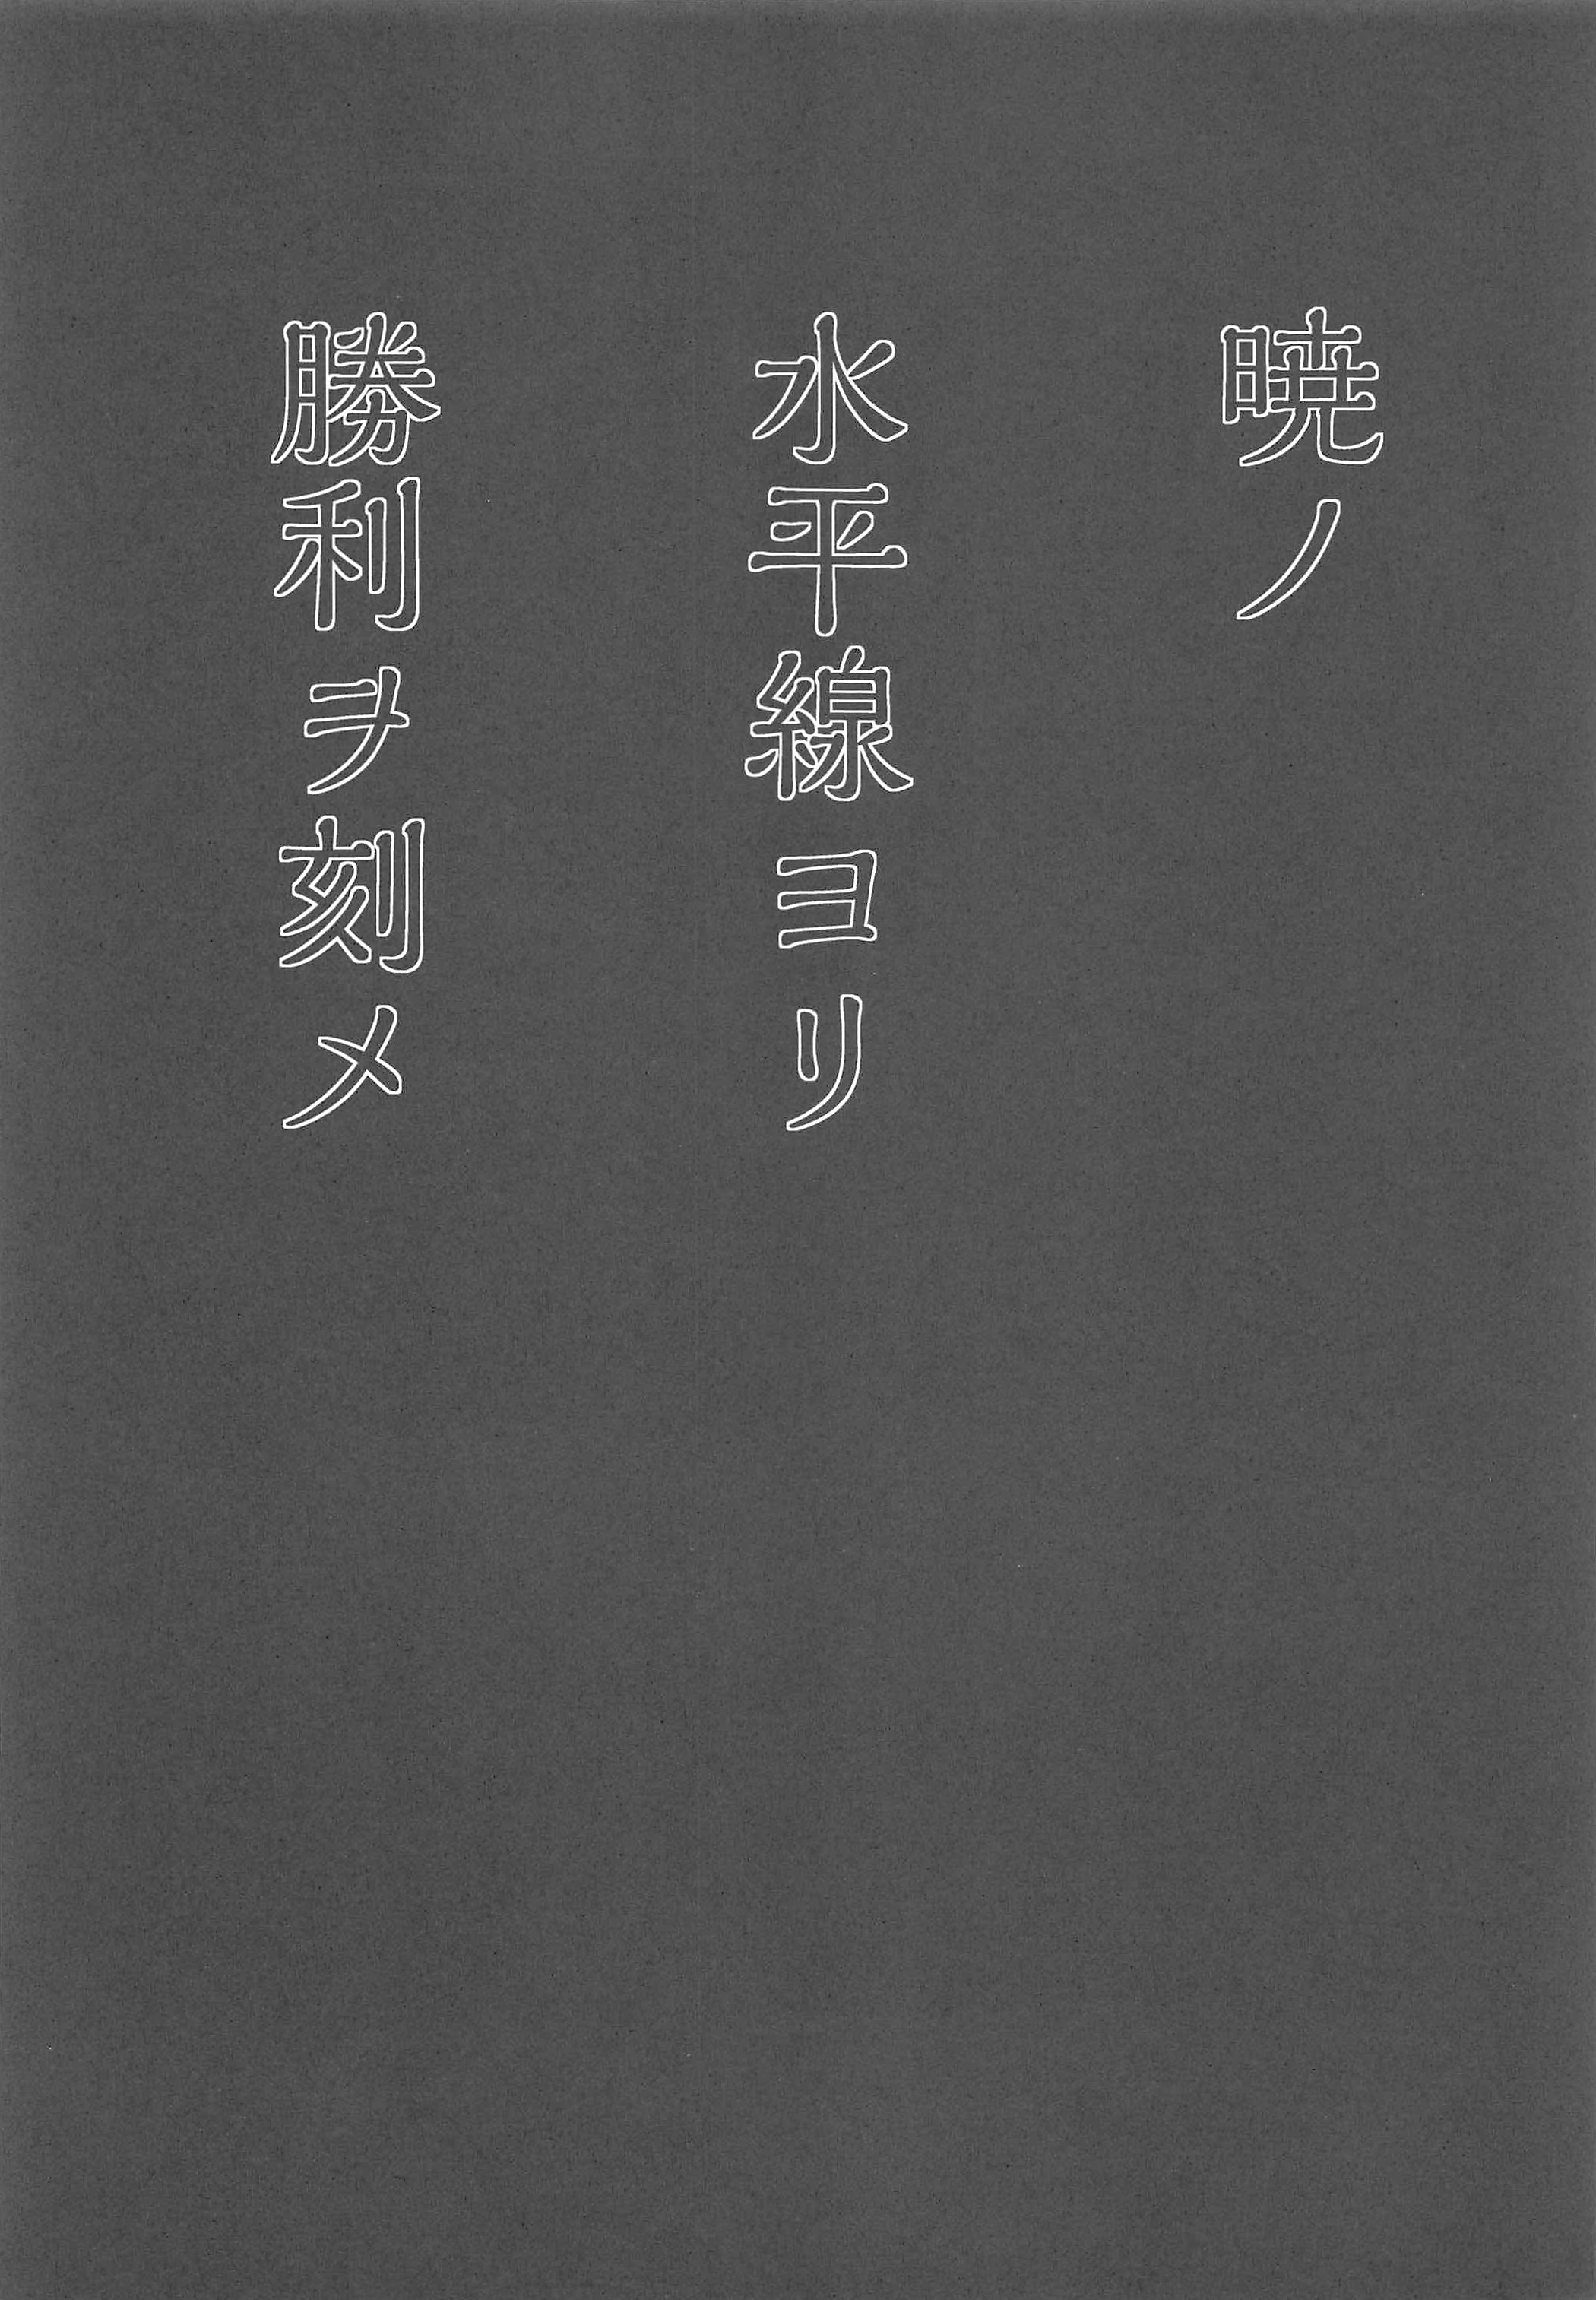 暁ノ
水平線ヨリ
勝利ヲ刻メ